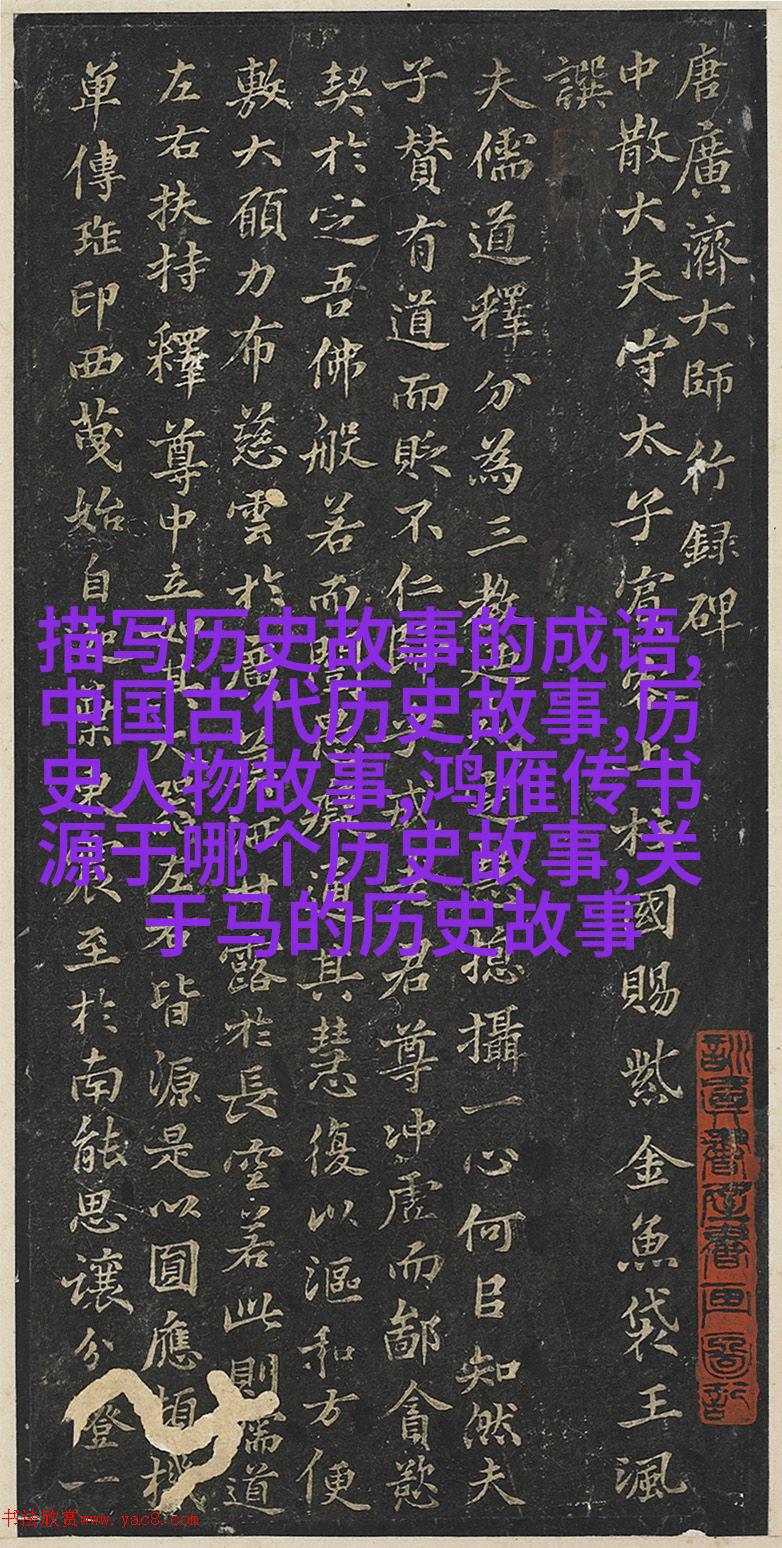 唐廣濟大師行録碑
中散大夫守太子賓客上柱國賜紫金魚袋王渢
譔
夫儒道釋分為三教迹則揔攝一心何且知然夫
子賛有道而貶不仁師乎成君尊冲虛而鄙貪慾
契於空吾佛般若而闡其慧復以漚和方便
敷大願力布慈雲於廣露於長空若此則儒道
左右扶持釋尊中立左右皆源是以圓應頓機
单傳班印西蔑始自震至於南能思讓分燈一
描写历史故事的成语,
中国古代历史故事,历
史人物故事,鸿雁传书
源于哪个历史故事,关
于马的历史故事
书法欣赏www.yac8.com